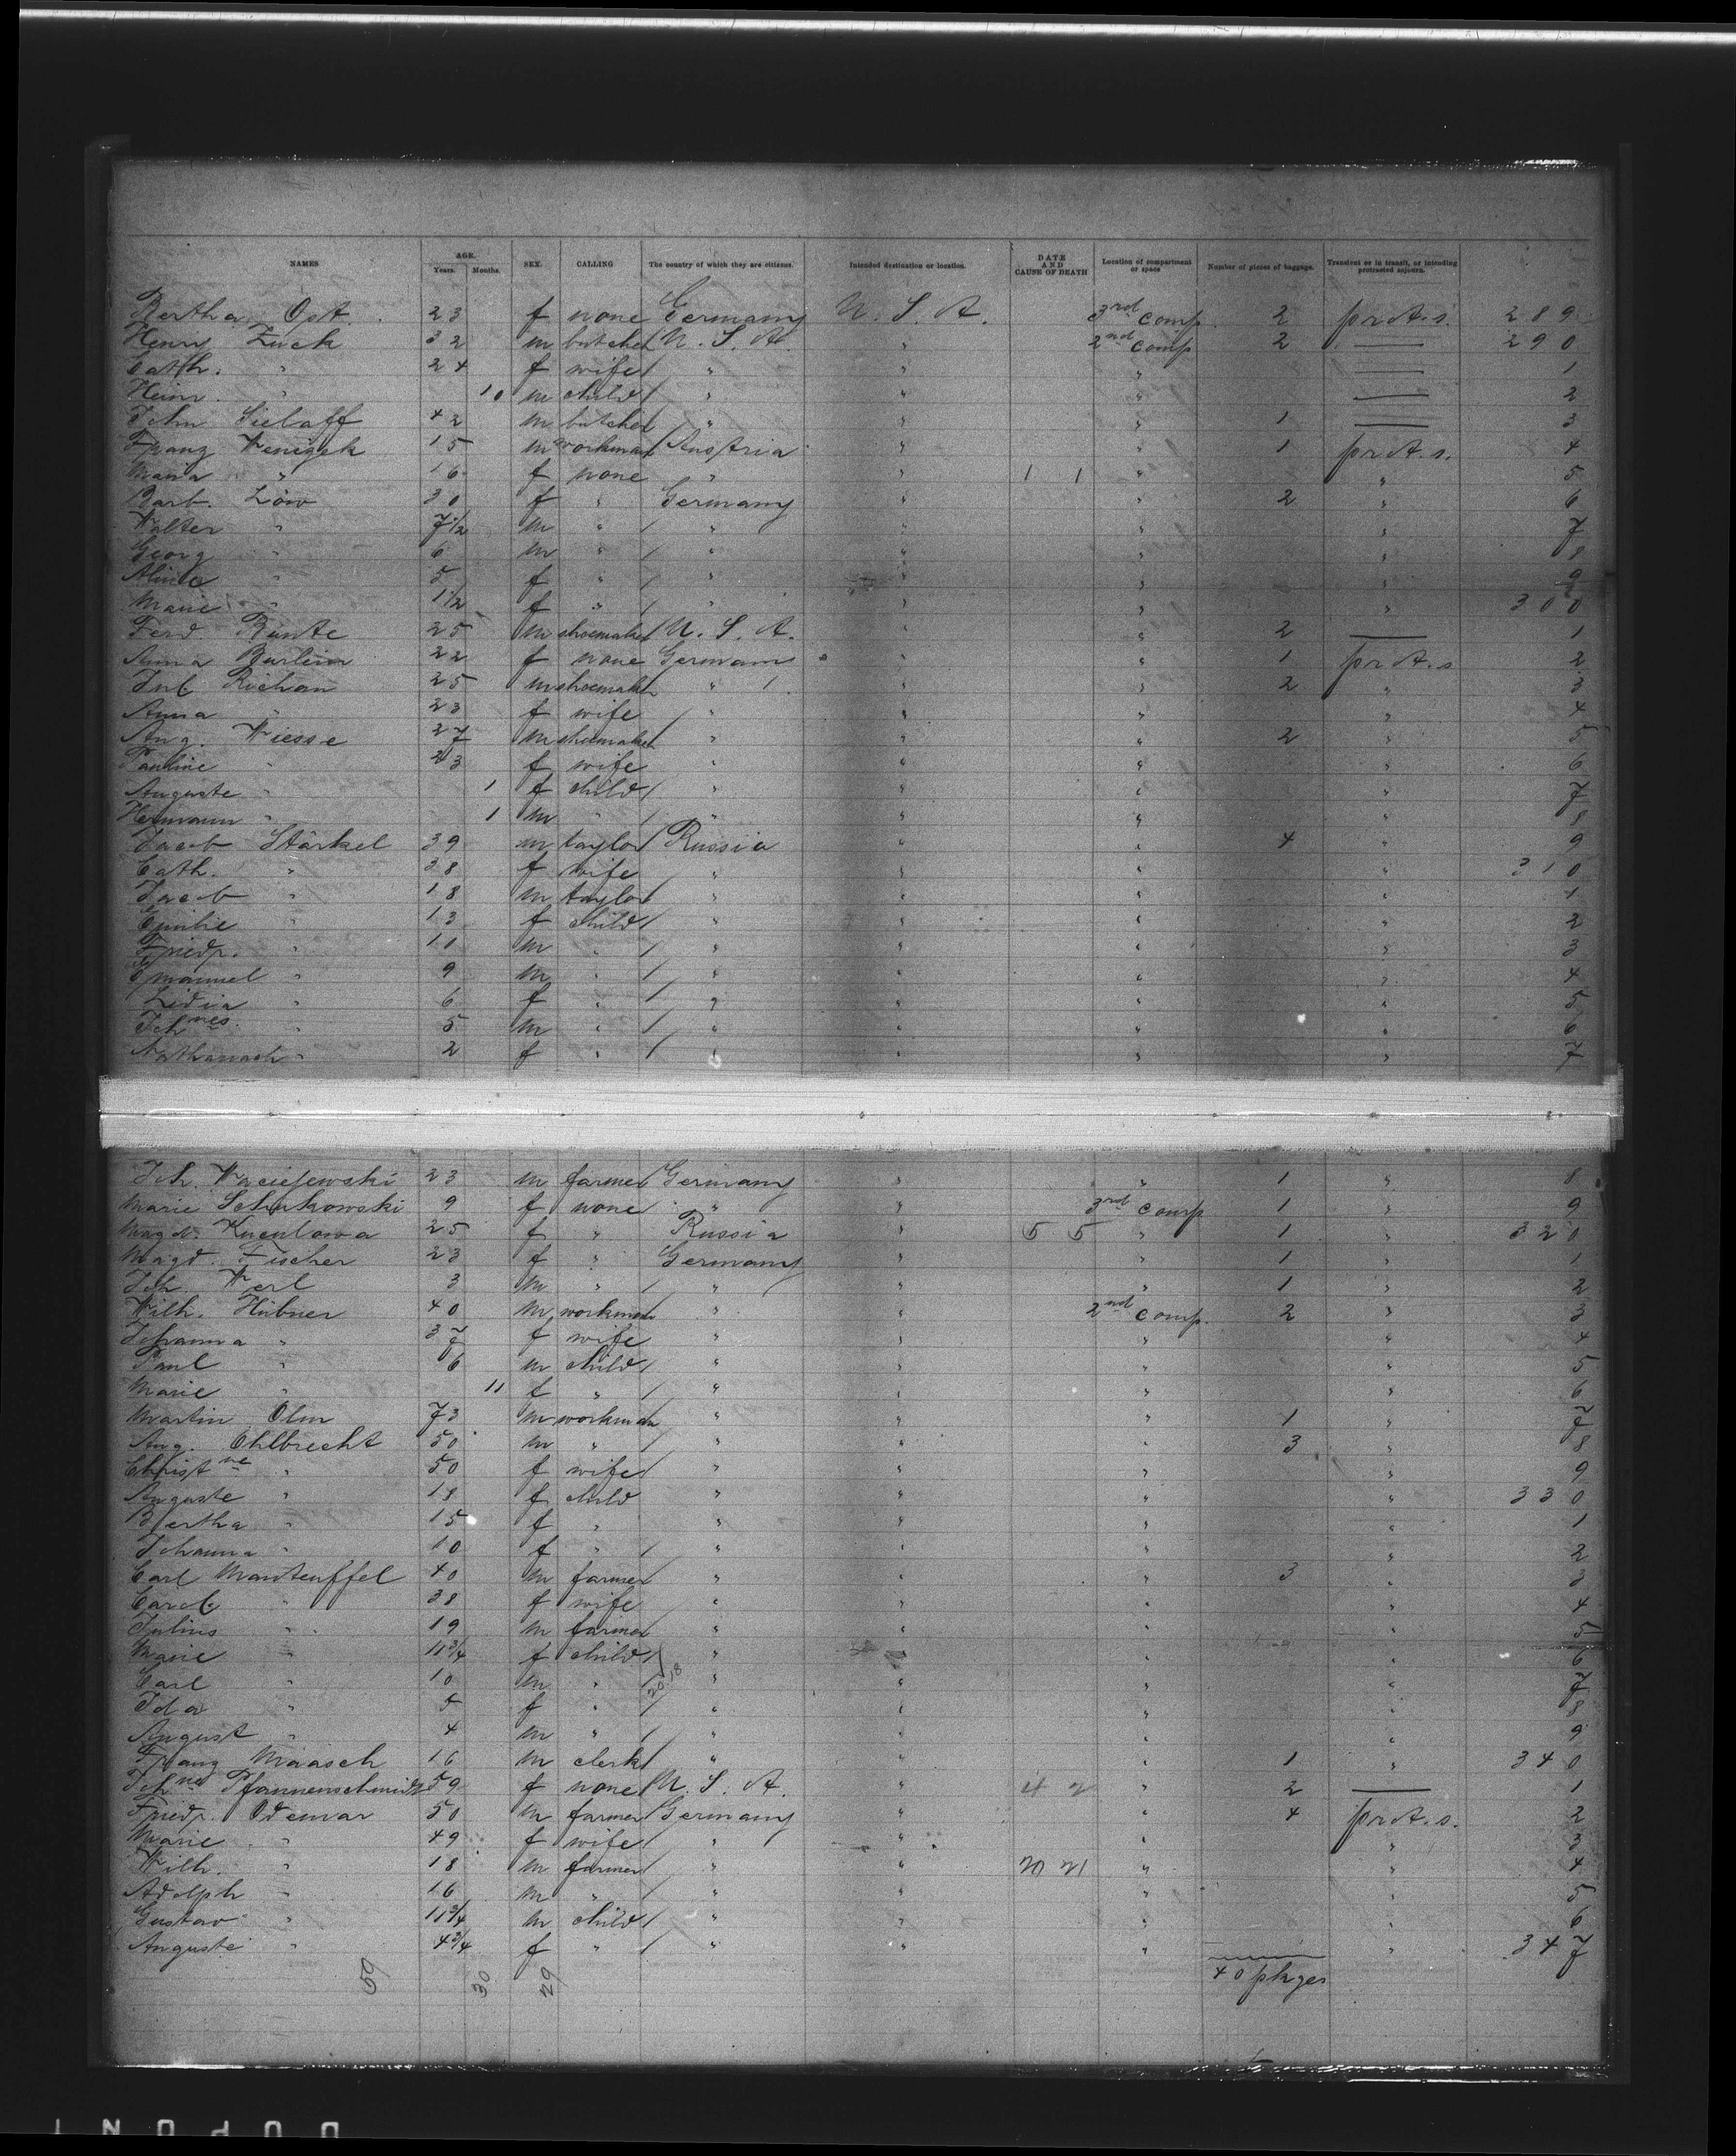 NAMES AGE. Years. Months. SEX. CALLING The country of which they are citizens. Intended destination or location. DATE AND CAUSE OF DEATH Location of compartment or space Number of pieces of baggage. Transient or in transit, or intending protracted sojourn.
Bertha Opt. 23 f none Germany U. S. A. 3rd comp. 2 prot.s. 289
Henry Zuck 32 m butcher U. S. A. " 2nd comp 2 — 290
Cath. " 24 f wife " " " — 1
Heinr. " 10 m child " " " — 2
John Sielaff 42 m butcher " " " 1 — 3
Franz 15 m workman Austria " " 1 prot.s. 4
Maria " 16 f none " " 1 1 " " 5
Barb. Löw 30 f " Germany " " 2 " 6
Walter " 7 1/2 m " " " " " 7
Georg " 6 m " " " " " 8
" 5 f " " " " " 9
Marie " 1 1/2 f " " " " " 300
Ferd. 25 m shoemaker U. S. A. " " 2 — 1
Anna Burlein 22 f none Germany " " 1 prot.s 2
Richan 25 m shoemaker " " " 2 " 3
Anna " 23 f wife " " " " 4
Aug. Wiesse 27 m shoemaker " " " 2 " 5
Pauline " 23 f wife " " " " 6
Auguste " 1 f child " " " " 7
Hermann " 1 m " " " " " 8
Jacob Stärkel 39 m taylor Russia " " 4 " 9
Cath. " 38 f wife " " " " 310
Jacob " 18 m taylor " " " " 1
Emilie " 13 f child " " " " 2
Friedr. " 11 m " " " " " 3
" 9 m " " " " " 4
Lidia " 6 f " " " " " 5
Johnes. " 5 m " " " " " 6
" 2 f " " " " " 7
Joh. 23 m farmer Germany " " 1 " 8
Marie Schukowski 9 f none " " 3rd comp 1 " 9
Magd. 25 f " Russia " 5 5 " 1 " 320
Magd. Fischer 23 f " Germany " " 1 " 1
Joh Werl 3 m " " " " 1 " 2
Wilh. Hübner 40 m workman " " 2nd comp. 2 " 3
Johanna " 37 f wife " " " " 4
Paul " 6 m child " " " " 5
Marie " 11 f " " " " " 6
Martin Olm 73 m workman " " " 1 " 7
Aug. Ohlbrecht 50 m " " " " 3 " 8
Christne " 50 f wife " " " " 9
Auguste " f child " " " " 330
Bertha " 15 f " " " " " 1
Johanna " 10 f " " " " " 2
Carl Manteuffel 40 m farmer " " " 3 " 3
Carol. " 38 f wife " " " " 4
Julius " 19 m farmer " " " " 5
Marie " 11 3/4 f child " " " " 6
Carl " 10 m " " " " " 7
Ida " 5 f " " " " " 8
August " 4 m " " " " " 9
Franz Maasch 16 m clerk " " " 1 " 340
Johne Pfannenschmidt 59 f none U. S. A. " 4 2 " 2 — 1
Friedr. Odemar 50 m farmer Germany " " 4 prot.s. 2
Marie " 49 f wife " " " " 3
Wilh. " 18 m farmer " " 20 21 " " 4
Adolph " 16 m " " " " " 5
Gustav " 11 3/4 m child " " " " 6
Auguste " 4 3/4 f " " " " " 347
59 30 29 40 pkges